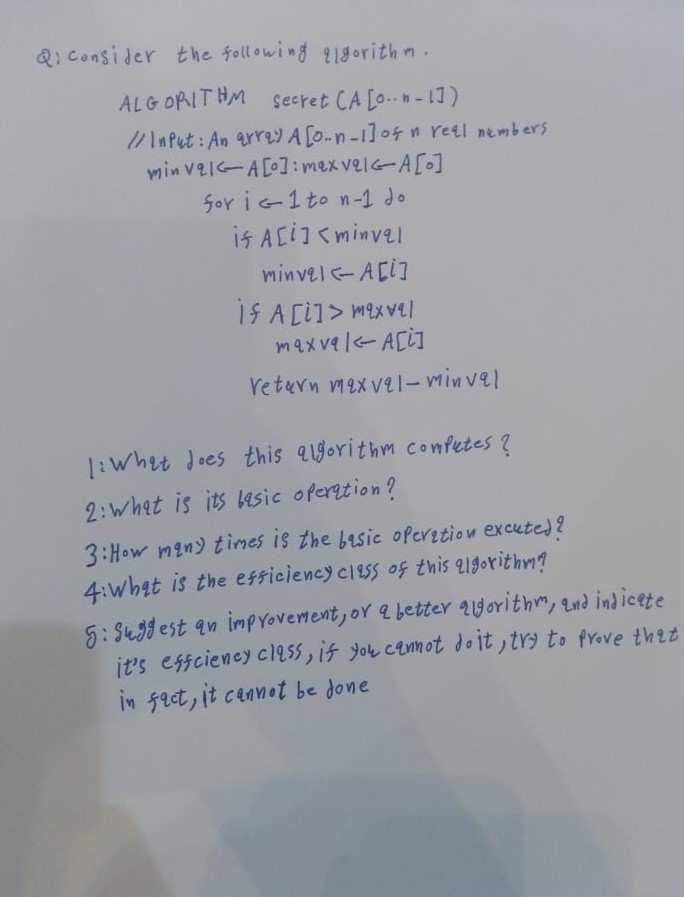 Q: Consider the following algorithm.
ALGORITHM secret (A[0..n-1])
// Input: An array A[0..n-1] of n real numbers
minval←A[0]: maxval←A[0]
for i←1 to n-1 do
if A[i]<minval
minval←A[i]
if A[i]>maxval
maxval←A[i]
return maxval-minval
1: What does this algorithm computes?
2: What is its basic operation?
3: How many times is the basic operation excuted?
4: What is the efficiency class of this algorithm?
5: Suggest an improvement, or a better algorithm, and indicate
it's effciency class, if you cannot do it, try to prove that
in fact, it cannot be done